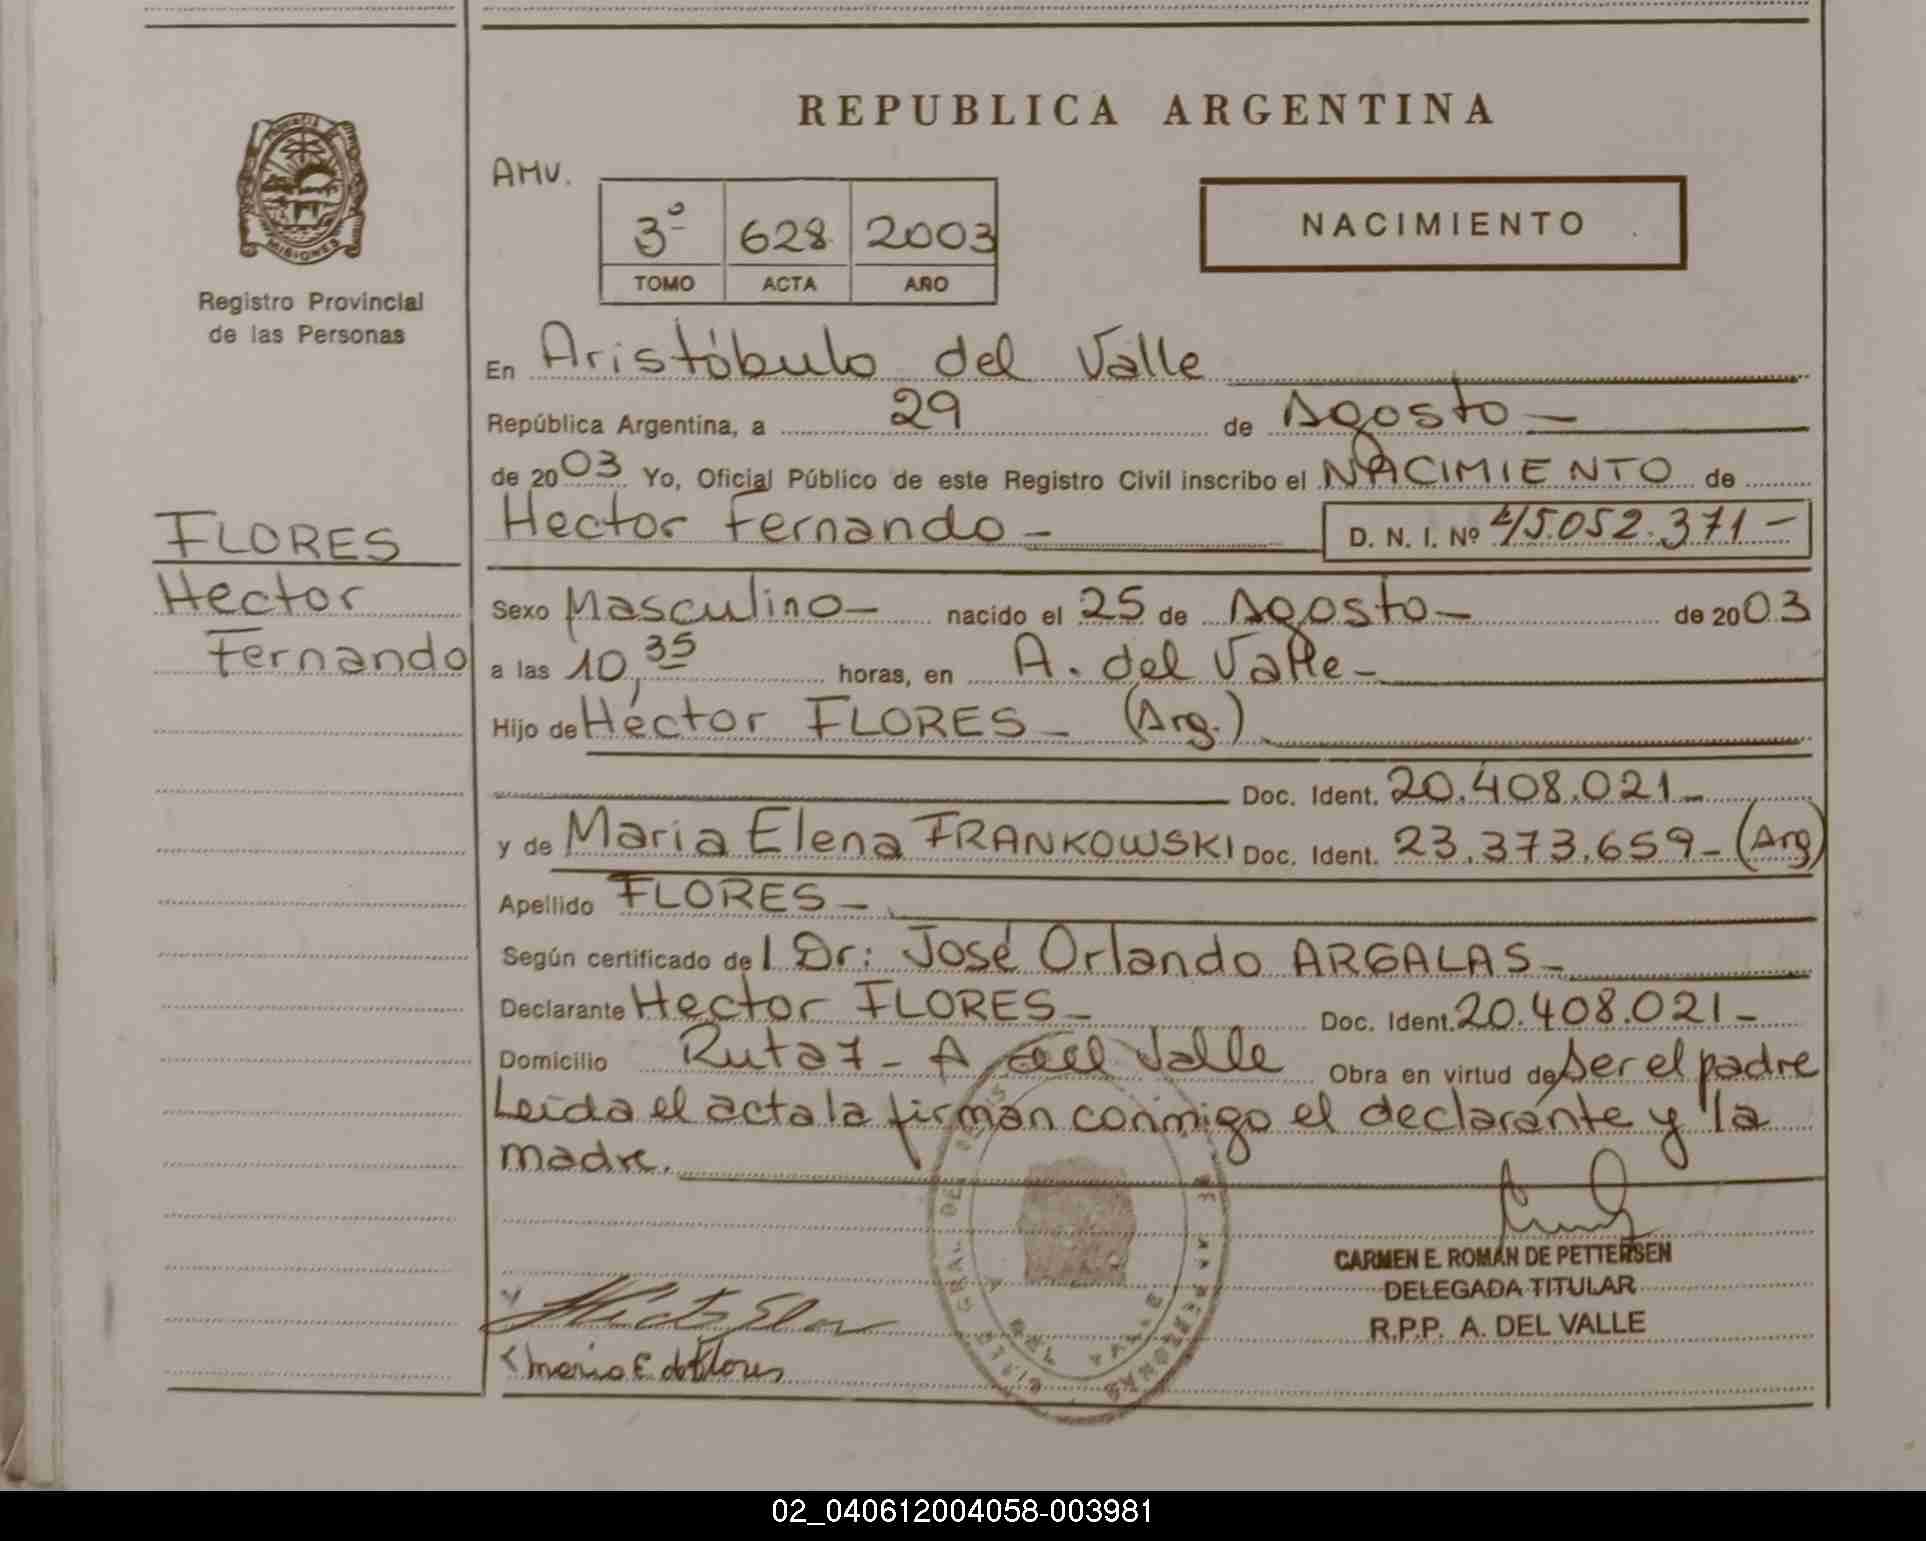 REPUBLICA ARGENTINA
PROVINCIA
MISIONES
Registro Provincial
de las Personas
AMV.
3º 628 2003
TOMO ACTA AÑO
NACIMIENTO
En Aristóbulo del Valle
República Argentina, a 29 de Agosto —
de 2003 Yo, Oficial Público de este Registro Civil inscribo el NACIMIENTO de
FLORES
Hector
Fernando
Hector Fernando — D. N. I. Nº 45.052.371 —
Sexo Masculino — nacido el 25 de Agosto — de 2003
a las 10,35 horas, en A. del Valle —
Hijo de Héctor FLORES — (Arg.)
Doc. Ident. 20.408.021 —
y de Maria Elena FRANKOWSKI Doc. Ident. 23.373.659 — (Arg)
Apellido FLORES —
Según certificado del Dr: José Orlando ARGALAS —
Declarante Hector FLORES — Doc. Ident. 20.408.021 —
Domicilio Ruta 7 — A del Valle Obra en virtud de ser el padre
Leída el acta la firman conmigo el declarante y la
madre.
CARMEN E. ROMÁN DE PETTERSEN
DELEGADA TITULAR
R.P.P. A. DEL VALLE
Maria E. de Flores
02_040612004058-003981